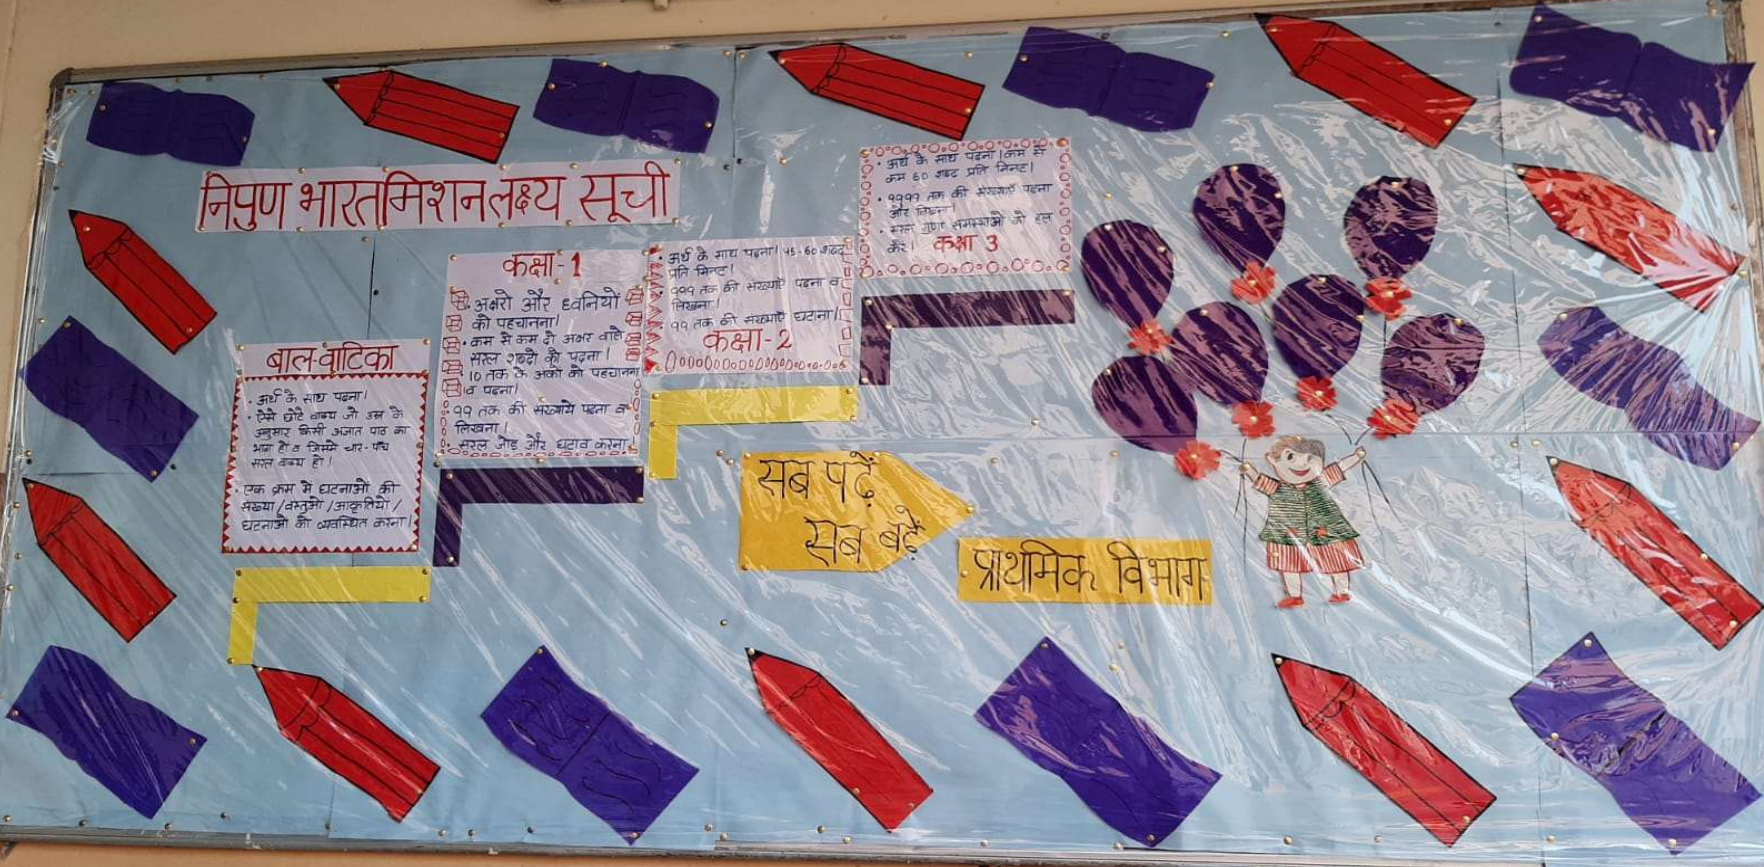 निपुण भारत मिशन लक्ष्य सूची
बाल-वाटिका
• अर्थ के साथ पढना।
• ऐसे छोटे वाक्य जो उम्र के
अनुसार किसी अज्ञात पाठ का
भाग हो व जिसमे चार-पाँच
सरल वाक्य हो।
• एक क्रम मे घटनाओ की
संख्या/वस्तुओ/आकृतियो/
घटनाओ को व्यवस्थित करना।
कक्षा-1
• अक्षरो और ध्वनियो
को पहचानना।
• कम से कम दो अक्षर वाले
सरल शब्दो को पढना।
10 तक के अंको को पहचानना
व पढना।
• 99 तक की संख्याये पढना व
लिखना।
• सरल जोड़ और घटाव करना।
• अर्थ के साथ पढना। 45-60 शब्द
प्रति मिनट।
• 999 तक की संख्याएँ पढना व
लिखना।
• 99 तक की संख्याएँ घटाना।
कक्षा-2
• अर्थ के साथ पढना। कम से
कम 60 शब्द प्रति मिनट।
• 9999 तक की संख्याएँ पढना
और लिखना
• सरल गुणा समस्याओ को हल
करे। कक्षा 3
सब पढ़ें
सब बढ़ें
प्राथमिक विभाग